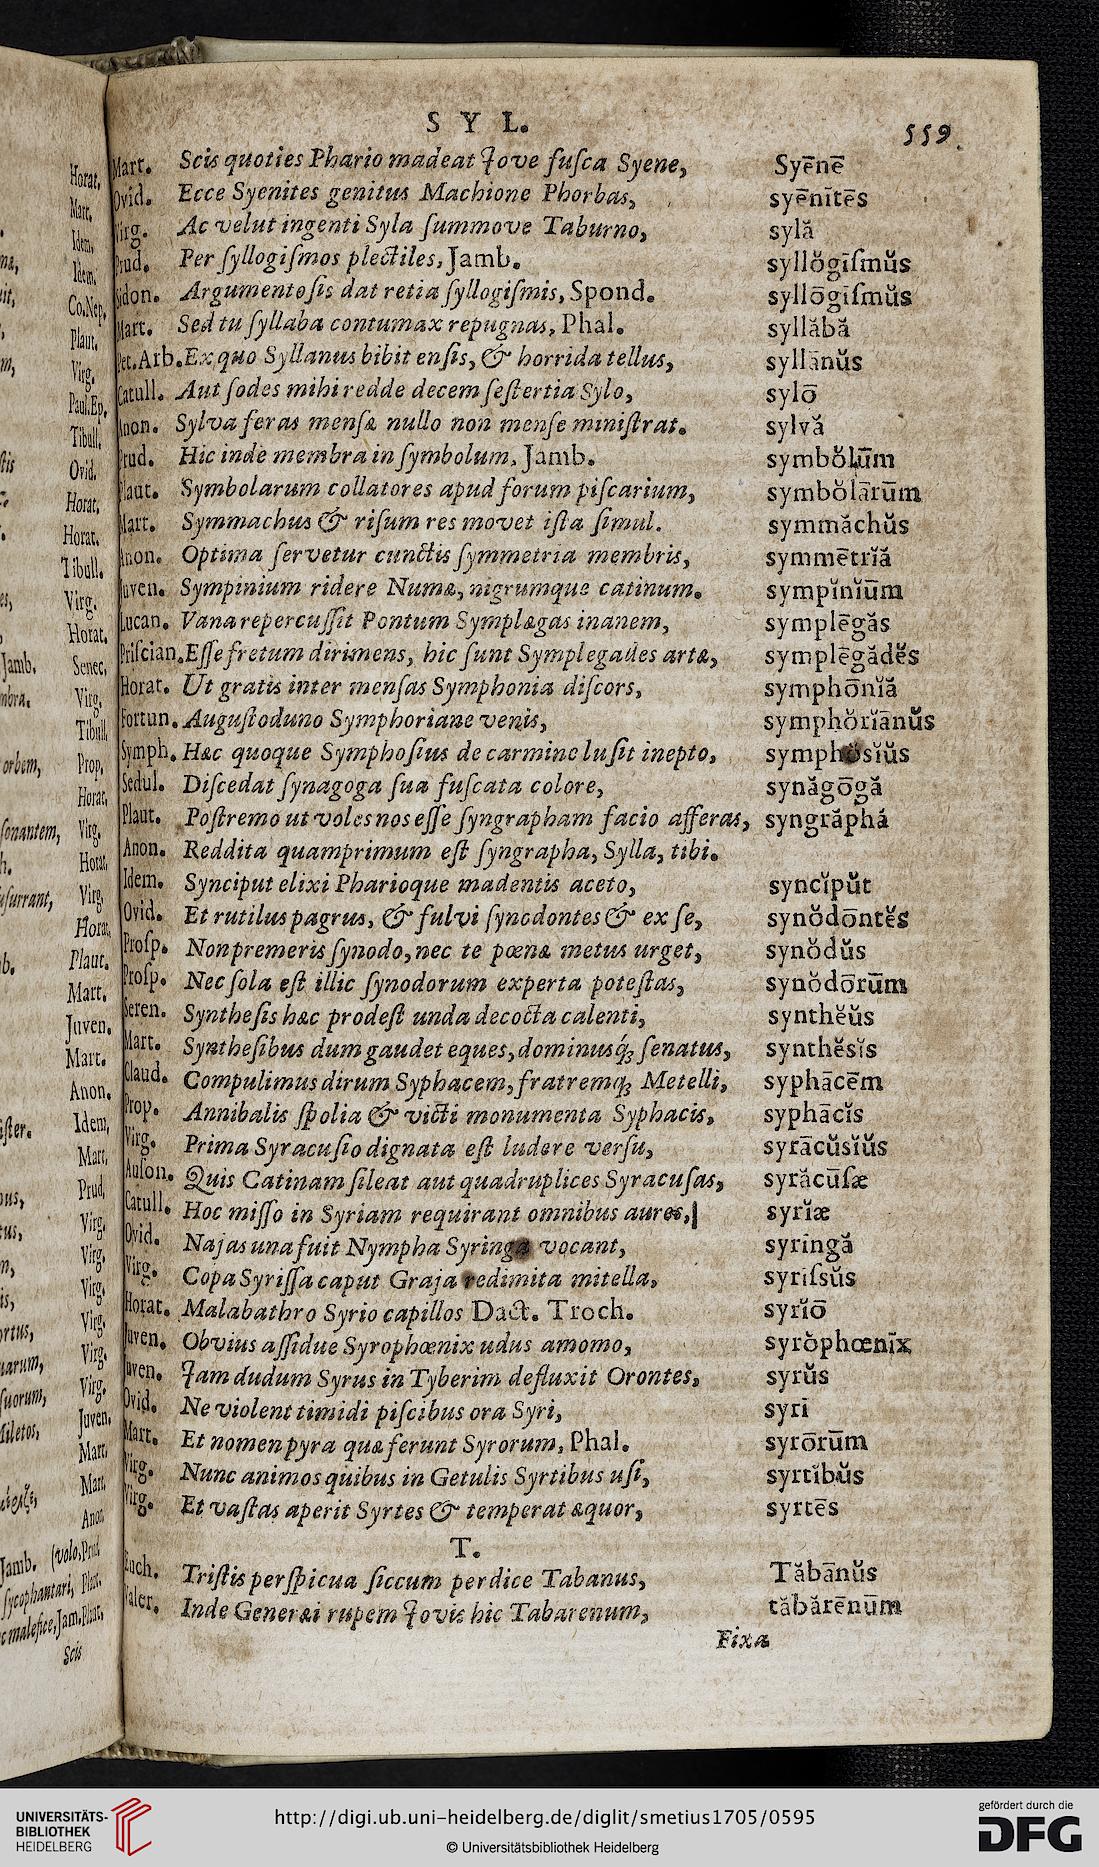 S Y L.
559.
Mart. Scis quoties Phario madeat Jove fuſca Syene, Syēnē
Ovid. Ecce Syenites genitus Machione Phorbas, syēnītēs
Virg. Ac velut ingenti Syla ſummove Taburno, sylă
Prud. Per ſyllogiſmos plectiles, Jamb. syllŏgīſmŭs
Sidon. Argumentoſis dat retia ſyllogiſmis, Spond. syllōgiſmŭs
Mart. Sed tu ſyllaba contumax repugnas, Phal. syllăbă
Pet. Arb. Ex quo Syllanus bibit enſis, & horrida tellus, syllānŭs
Catull. Aut ſodes mihi redde decem ſeſtertia Sylo, sylō
Anon. Sylva feras menſæ nullo non menſe miniſtrat. sylvă
Prud. Hic inde membra in ſymbolum, Jamb. symbŏlūm
Plaut. Symbolarum collatores apud forum piſcarium, symbŏlārūm
Mart. Symmachus & riſum res movet iſta ſimul. symmăchŭs
Anon. Optima ſervetur cunctis ſymmetria membris, symmētrĭă
Juven. Sympinium ridere Numæ, nigrumque catinum. sympĭnĭūm
Lucan. Vana repercuſſit Pontum Symplægas inanem, symplēgăs
Priſcian. Eſſe fretum dirimens, hic ſunt Symplegades artæ, symplēgădĕs
Horat. Ut gratis inter menſas Symphonia diſcors, symphōnĭă
Fortun. Auguſtoduno Symphoriane venis, symphŏrĭānŭs
Symph. Hæc quoque Symphoſius de carmine luſit inepto, symphŏsĭŭs
Sedul. Diſcedat ſynagoga ſua fuſcata colore, synăgōgă
Plaut. Poſtremo ut voles nos eſſe ſyngrapham facio afferas, syngrăphă
Anon. Reddita quamprimum eſt ſyngrapha, Sylla, tibi.
Idem. Synciput elixi Pharioque madentis aceto, syncĭpŭt
Ovid. Et rutilus pagrus, & fulvi ſynodontes & ex ſe, synŏdōntĕs
Proſp. Non premeris ſynodo, nec te pœnæ metus urget, synŏdŭs
Proſp. Nec ſola eſt illic ſynodorum experta poteſtas, synŏdōrūm
Seren. Syntheſis hæc prodeſt unda decocta calenti, synthĕŭs
Mart. Syntheſibus dum gaudet eques, dominusq́; ſenatus, synthĕsĭs
Claud. Compulimus dirum Syphacem, fratremq; Metelli, syphācēm
Prop. Annibalis ſpolia & victi monumenta Syphacis, syphācĭs
Virg. Prima Syracuſio dignata eſt ludere verſu, syrācŭsĭŭs
Auſon. Quis Catinam ſileat aut quadruplices Syracuſas, syrăcūſæ
Catull. Hoc miſſo in Syriam requirant omnibus aures, syrĭæ
Ovid. Najas una fuit Nympha Syringa vocant, syringă
Virg. Copa Syriſſa caput Graja redimita mitella, syriſsŭs
Horat. Malabathro Syrio capillos Dact. Troch. syrĭō
Juven. Obvius aſſidue Syrophœnix udus amomo, syrŏphœnīx
Juven. Jam dudum Syrus in Tyberim defluxit Orontes, syrŭs
Ovid. Ne violent timidi piſcibus ora Syri, syri
Mart. Et nomen pyra quæ ferunt Syrorum, Phal. syrōrūm
Virg. Nunc animos quibus in Getulis Syrtibus uſi, syrtĭbŭs
Virg. Et vaſtas aperit Syrtes & temperat æquor, syrtēs
T.
Euch. Triſtis perſpicua ſiccum perdice Tabanus, Tăbānŭs
Valer. Inde Generæi rupem Jovis hic Tabarenum, tăbărēnūm
Fixa
Horat.
Mart.
Idem,
Idem,
Co.Nep.
Plaut.
Virg.
Paul.Ep.
Tibull.
Ovid.
Horat.
Horat.
Tibull.
Virg.
Horat.
Jamb. Senec.
Virg.
Tibull.
orbem, Prop.
Horat.
ſonantem, Virg.
Horat.
Virg.
Horat.
Plaut.
Mart.
Juven.
Mart.
Anon.
Idem,
Mart.
Prud.
Virg.
Virg.
Virg.
Virg.
Virg.
Virg.
Juven.
Mart.
Mart.
Anon.
Jamb. (volo, Prud.
ſycophantari, Plaut.
malefice, Jam. Phær.
Scis
UNIVERSITÄTS-
BIBLIOTHEK
HEIDELBERG
http://digi.ub.uni-heidelberg.de/diglit/smetius1705/0595
© Universitätsbibliothek Heidelberg
gefördert durch die
DFG